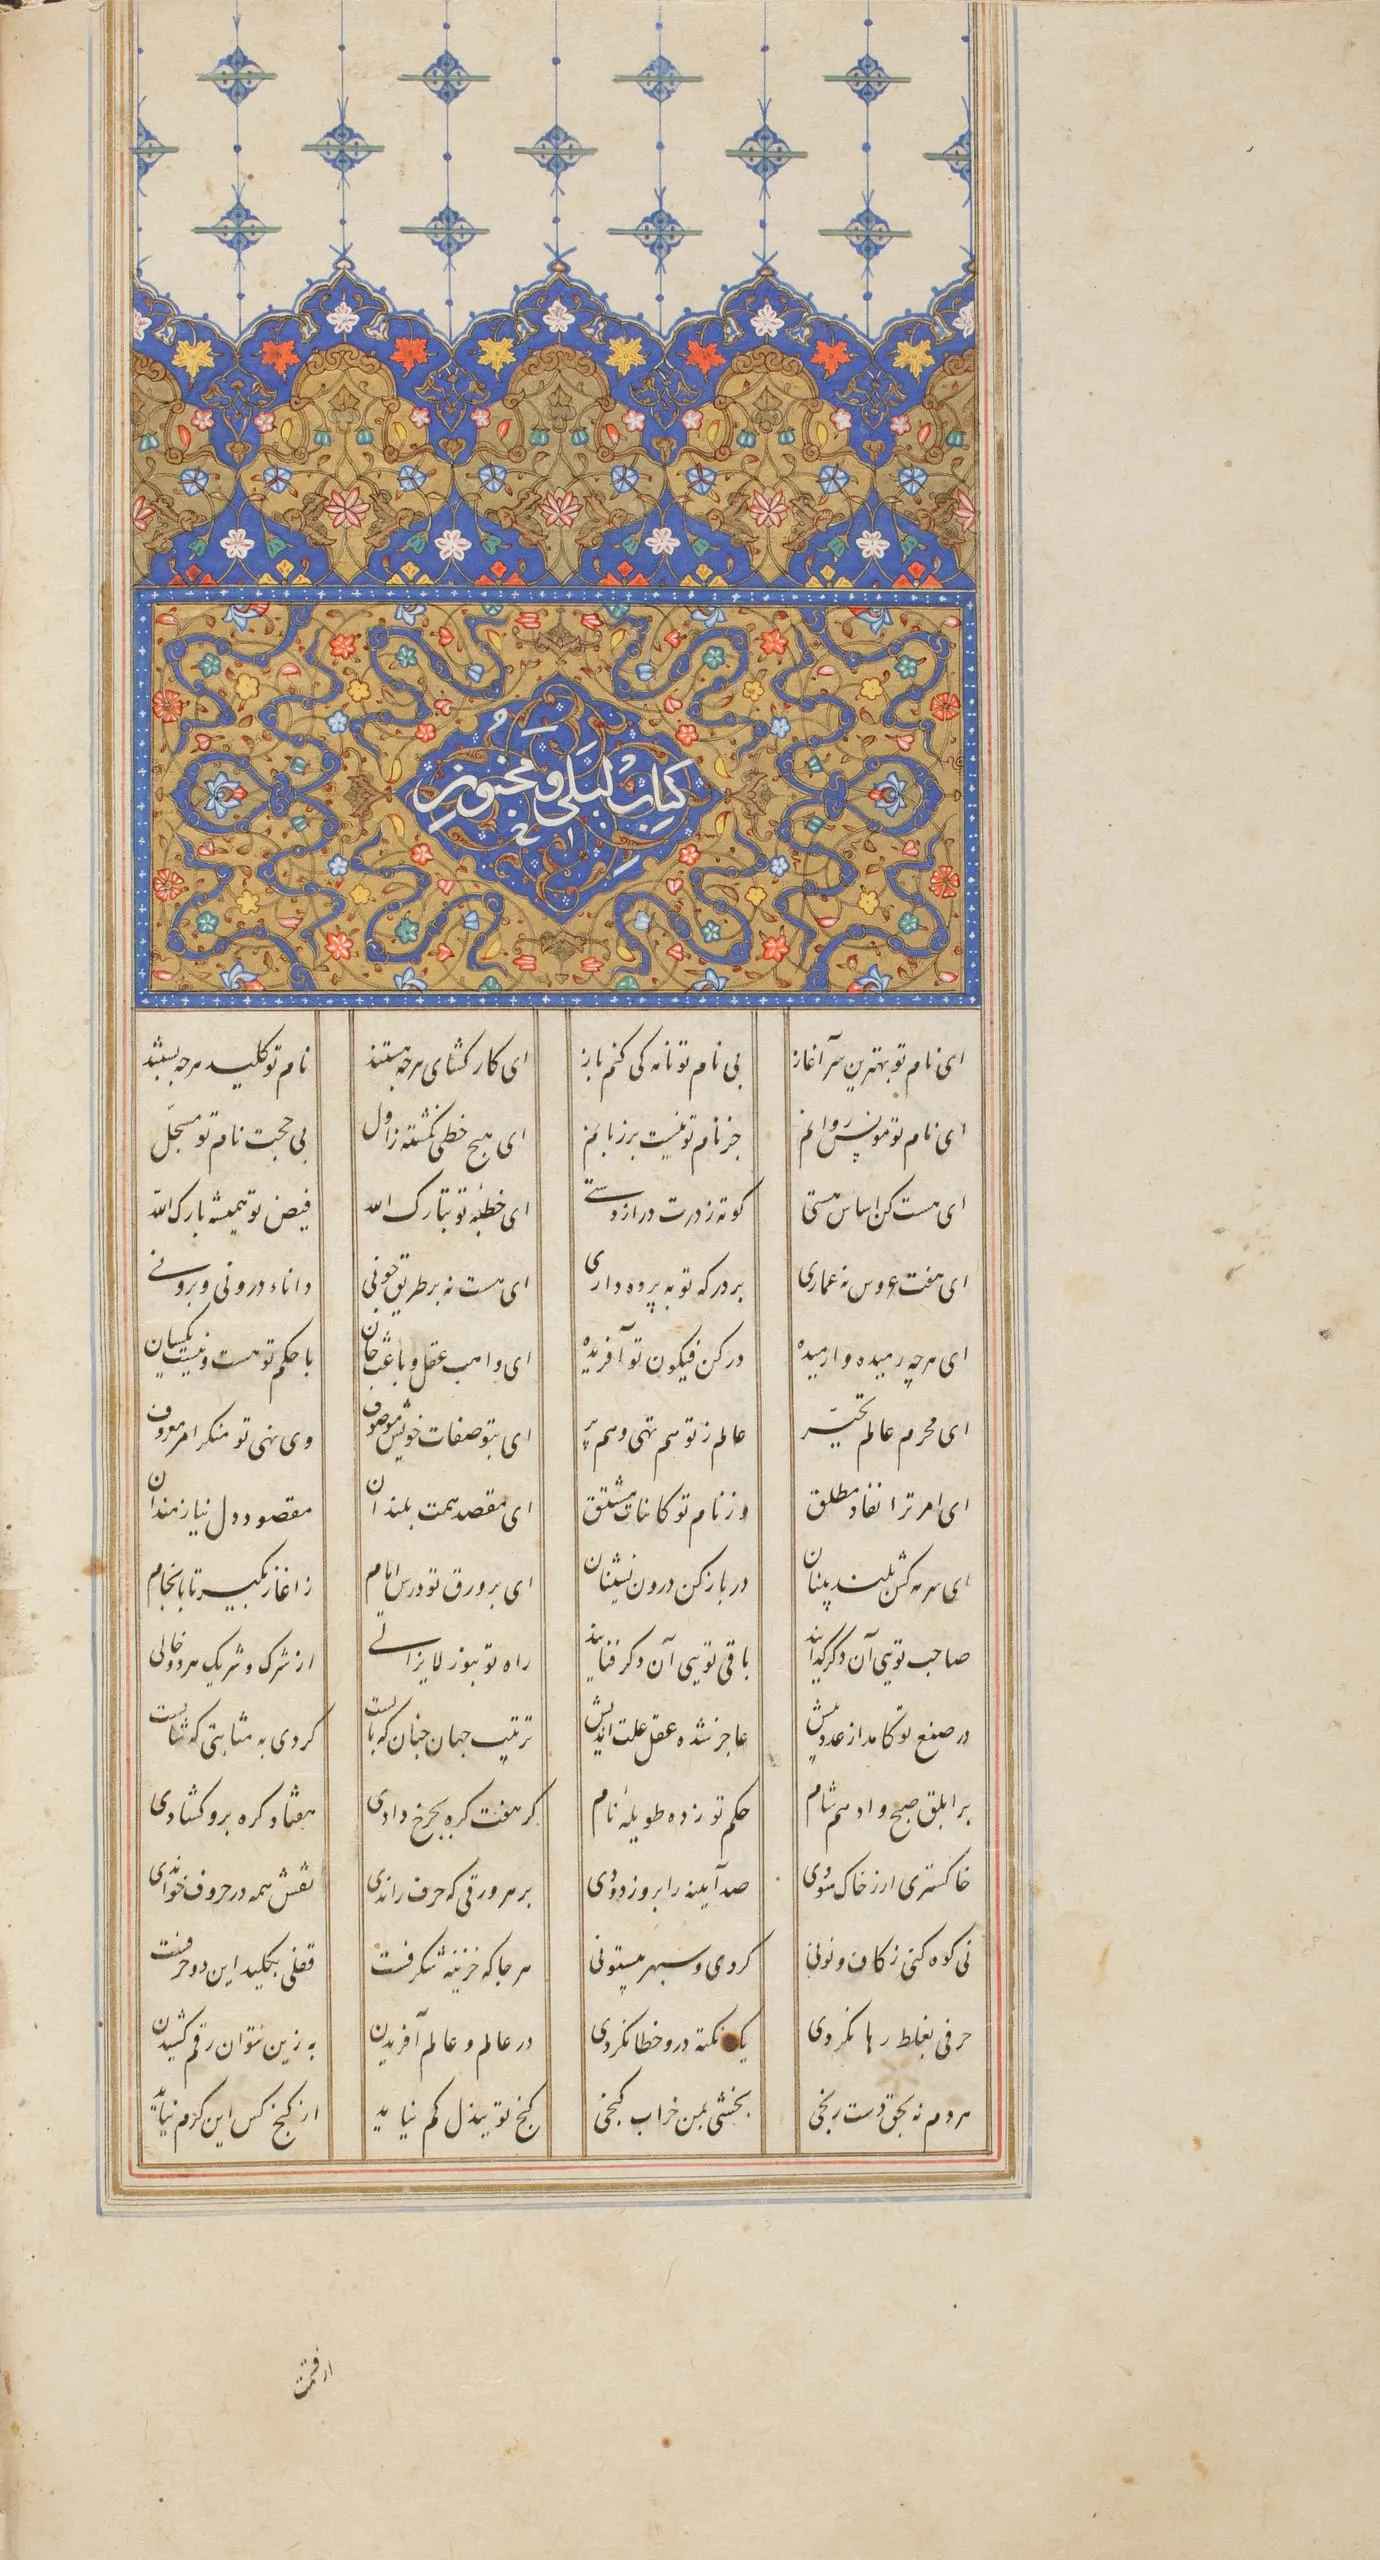 کتاب لیلی و مجنون
ای نام تو بهترین سرآغاز بی نام تو نامه کی کنم باز ای کار کشای هرچه هستند نام تو کلید هرچه بستند
ای نام تو مونس روانم جز نام تو نیست بر زبانم ای هیچ خطی نکشته ز اول بی حجت نام تو مسجل
ای هست کن اساس هستی کوته ز درت دراز دستی ای خطبه تو تبارک الله فیض تو همیشه بارک الله
ای هفت عروس نه عماری بر درکه تو به پرده داری ای هست نه بر طریق چونی داناء درونی و برونی
ای هرچه رمیده و ارمیده در کن فیکون تو آفریده ای واهب عقل و باعث جان با حکم تو هست و نیست یکسان
ای محرم عالم تحیر عالم ز تو هم تهی و هم پر ای بتو صفات خویش موصوف وی نهی تو منکر امر معروف
ای امر ترا نفاد مطلق وز نام تو کاینات مشتق ای مقصد همت بلندان مقصود دل نیازمندان
ای سرمه کش بلند بینان در باز کن درون نشینان ای بر ورق تو درس ایام ز اغاز رسیده تا بانجام
صاحب تویی آن دکر کدایند باقی تویی آن دکر فنایند راه تو بنور لایزالی از شرک و شریک هر دو خالی
در صنع تو کامد از عدد بیش عاجز شده عقل علت اندیش ترتیب جهان چنان که بایست کردی به مثابتی که شایست
بر ابلق صبح و ادهم شام حکم تو زده طویلهٔ نام کر هفت کره بچرخ دادی هفتاد کره برو کشادی
خاکستری ار ز خاک سودی صد آیینه را برو زدودی بر هر ورقی که حرف راندی نقش همه در حروف خواندی
نی کوه کنی ز کاف و نونی کردی و سپهر بیستونی هر جا که خزینه شکرفست قفلی بکلید این دو حرفست
حرفی بغلط رها نکردی یک نکته درو خطا نکردی در عالم و عالم آفریدن به زین نتوان رقم کشیدن
هر دم نه بحق دست رنجی بخشی بمن خراب کنجی کنج تو ببذل کم نیاید از کنج کس این کرم نیاید
از قسمت